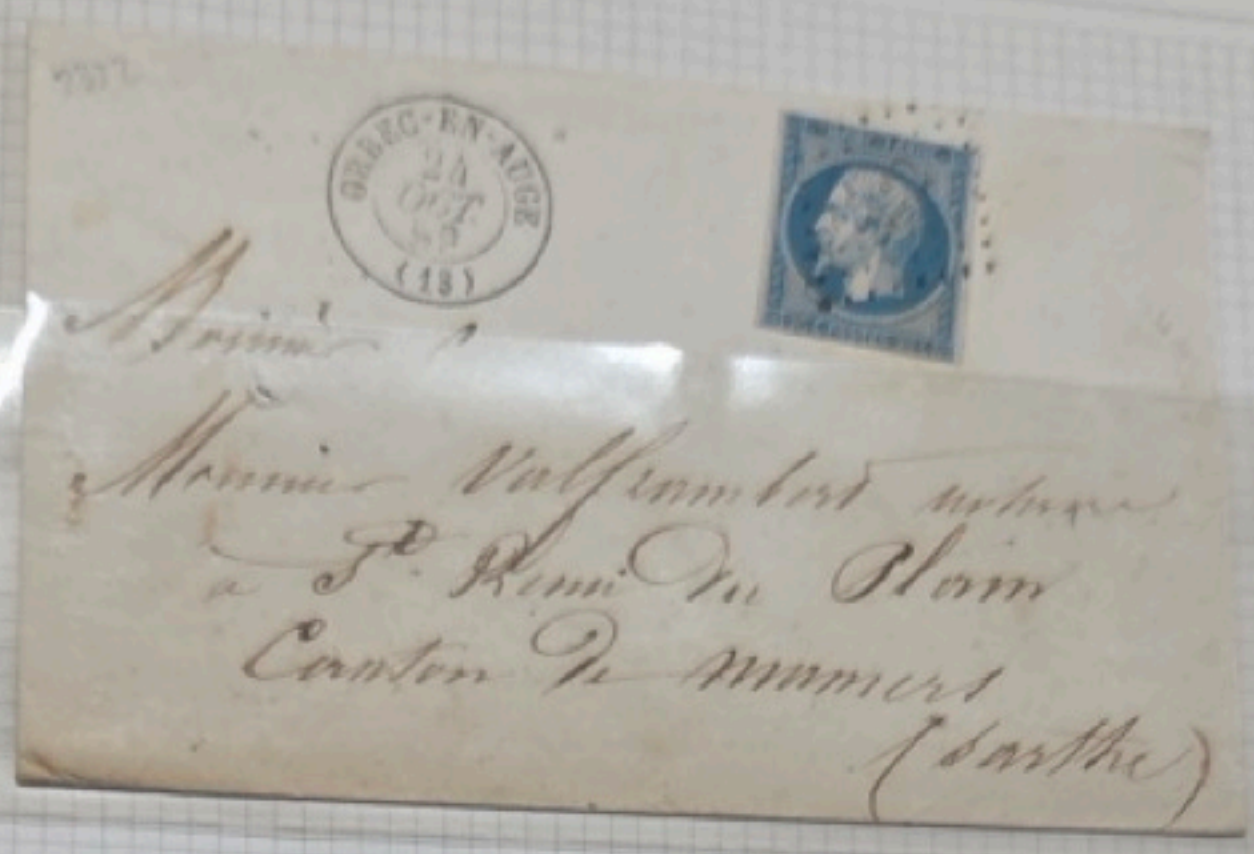 ORBEC-EN-AUGE
24
OCT.
(13)
Monsieur
Monsieur Valframbert notaire
a St. Remi du Plain
Canton de mamers
(Sarthe)